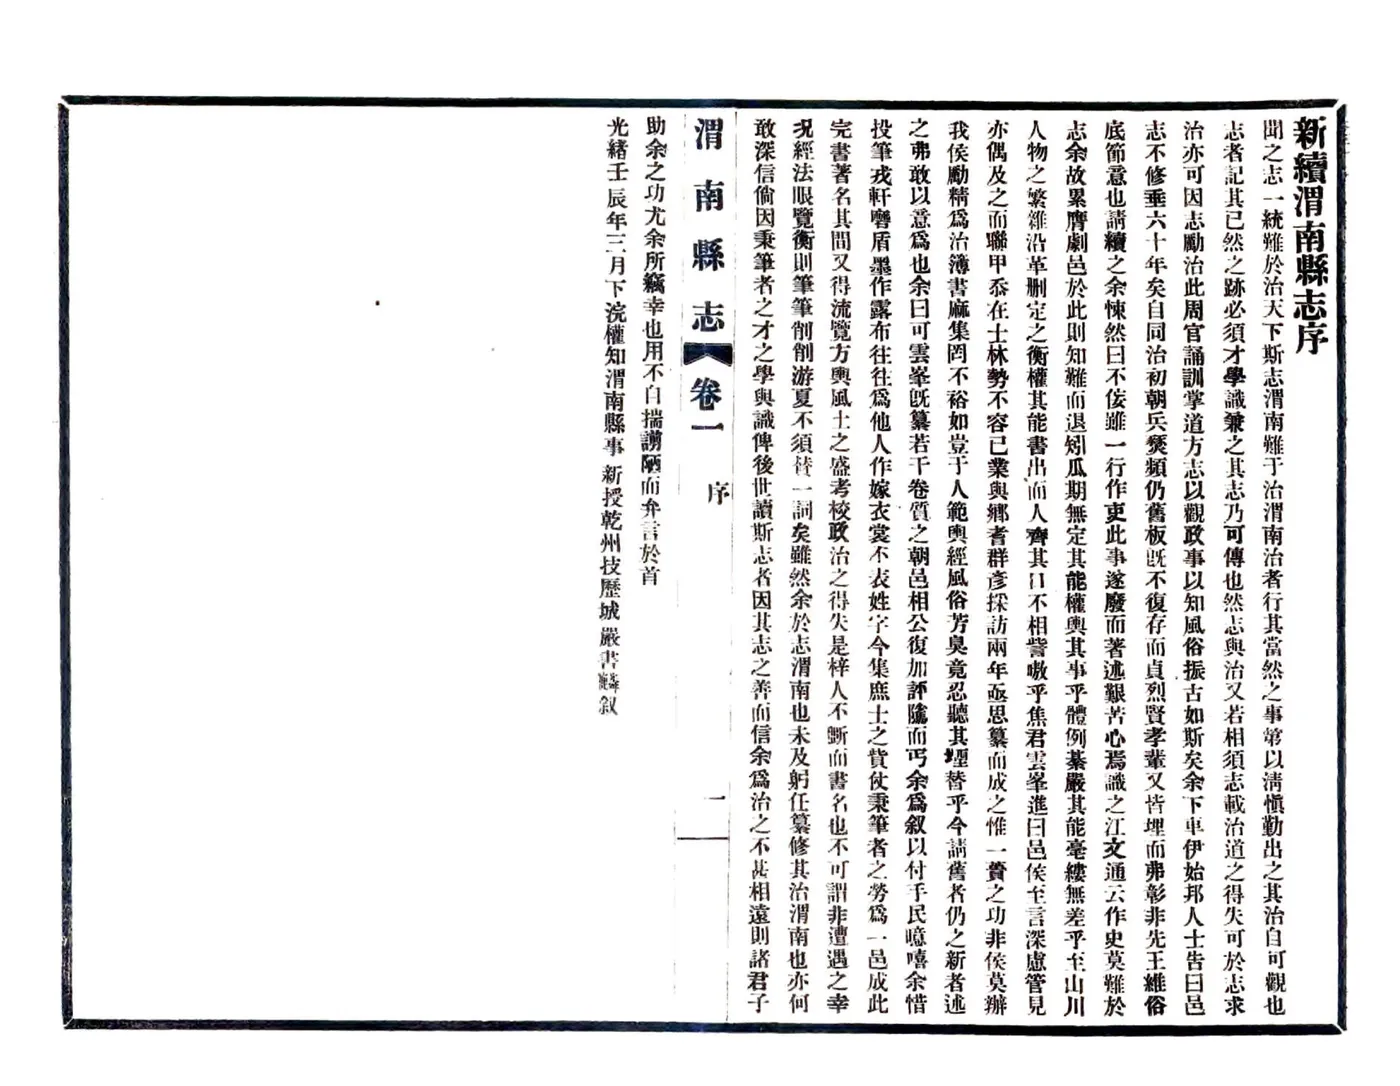 新續渭南縣志序
聞之志一統難於治天下斯志渭南難于治渭南治者行其當然之事第以淸愼勤出之其治自可觀也
志者記其已然之跡必須才學識兼之其志乃可傳也然志與治又若相須志載治道之得失可於志求
治亦可因志勵治此周官誦訓掌道方志以觀政事以知風俗振古如斯矣余下車伊始邦人士告曰邑
志不修垂六十年矣自同治初朝兵燹頻仍舊板旣不復存而貞烈賢孝輩又皆埋而弗彰非先王維俗
底節意也請續之余悚然曰不侫雖一行作吏此事遂廢而著述艱苦心焉識之江文通云作史莫難於
志余故累膺劇邑於此則知難而退矧瓜期無定其能權輿其事乎體例綦嚴其能毫縷無差乎至山川
人物之繁雜沿革刪定之衡權其能書出而人齊其口不相訾嗷乎焦君雲峯進曰邑侯至言深慮管見
亦偶及之而聯甲忝在士林勢不容已業與鄕耆群彥採訪兩年亟思纂而成之惟一簣之功非侯莫辦
我侯勵精爲治簿書麻集罔不裕如豈于人範輿經風俗芳臭竟忍聽其堙替乎今請舊者仍之新者述
之弗敢以意爲也余曰可雲峯旣纂若干卷質之朝邑相公復加評隲而丐余爲叙以付手民噫嘻余惜
投筆戎軒礳盾墨作露布往往爲他人作嫁衣裳不表姓字今集庶士之貲仗秉筆者之勞爲一邑成此
完書著名其間又得流覽方輿風土之盛考校政治之得失是梓人不斷而書名也不可謂非遭遇之幸
况經法眼覽衡則筆筆削削游夏不須替一詞矣雖然余於志渭南也未及躬任纂修其治渭南也亦何
敢深信倘因秉筆者之才之學與識俾後世讀斯志者因其志之善而信余爲治之不甚相遠則諸君子
渭南縣志 卷一 序 一
助余之功尤余所竊幸也用不自揣謭陋而弁言於首
光緒壬辰年三月下浣權知渭南縣事新授乾州技歷城嚴書麟叙